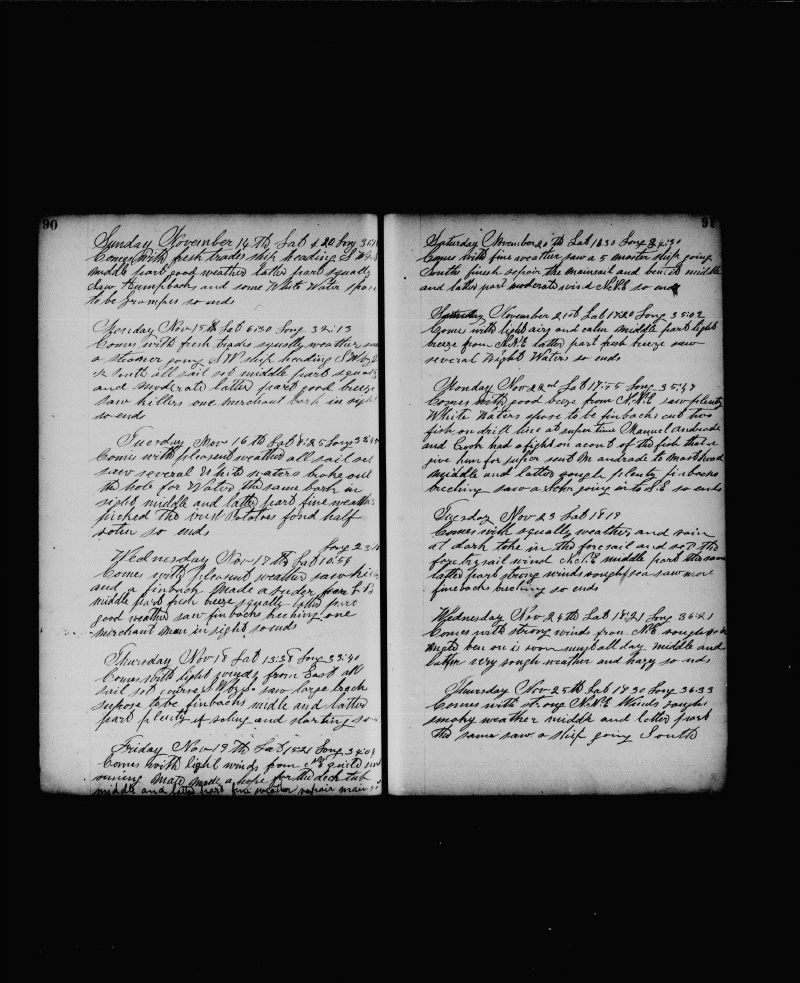 90
Sunday November 14th Lat 4:20 Long
Comes with fresh trades ship heading S W
middle part good weather latter part squally
Saw Humpbacks and some White Water spose
to be Grampus so ends
Monday Nov 15th Lat 6:30 Long 32:13
Comes with fresh trades squally weather
a steamer going S W ship heading S W
South all sail set middle part squaly
and moderate latter part good breeze
saw killers one merchant bark in sight
so ends
Tuesday Nov 16th Lat 8:25 Long
Comes with pleasent weather all sail set
saw several White waters broke out
the hole for Water the same bark in
sight middle and latter part fine weather
picked the Potatoes fond half
roten so ends
Long
Wednesday Nov 17th Lat 10:59
Comes with pleasent weather saw
and a finback Made a
middle part fresh breeze squally latter part
good weather saw finbacks one
merchant man in sight so ends
Thursday Nov 18 Lat 13:38 Long 33:40
Comes with light winds from East all
sail set course saw large
supose to be finbacks midle and latter
part plenty of and so
Friday Nov 19th Lat Long 34:04
Comes with light winds from
made a for the deck tub
middle and latter part fine weather repair main
91
Saturday November 20th Lat 16:30 Long 34:30
Comes with fine weather saw a 5 master ship going
South finish repair the mainsail and bent it middle
and latter part moderate wind N.N.E so ends
Sunday November 21st Lat 17:20 Long 35:02
Comes with light airy and calm middle part light
breeze from N.N.E latter part fresh breeze saw
several Waters so ends
Monday Nov 22nd Lat 17:55 Long
Comes with good beeze from N.N.E saw plenty
White Waters spose to be finbacks cut two
fish on drill at super time Manuel andrade
and Cook had a fight on acount of the fish that
give him for super sent M andrade to masthead
middle and latter plenty finbacks
breching saw a Schr going in to S.E so ends
Tuesday Nov 23 Lat 18:19
Comes with squally weather and rain
at dark take in the foresail and set the
fore trysail wind N.N.E middle part the same
latter part strong winds rough sea saw more
finebacks breching so ends
Wednesday Nov 24th Lat 18:21 Long 36:21
Comes with strong winds from N.E rough
all day middle and
latter very rough weather and hazy so ends
Thursday Nov 25th Lat 19:30 Long 36:33
Comes with strong N.N.E Winds rough
smoky weather middle and latter part
the same saw a ship going South